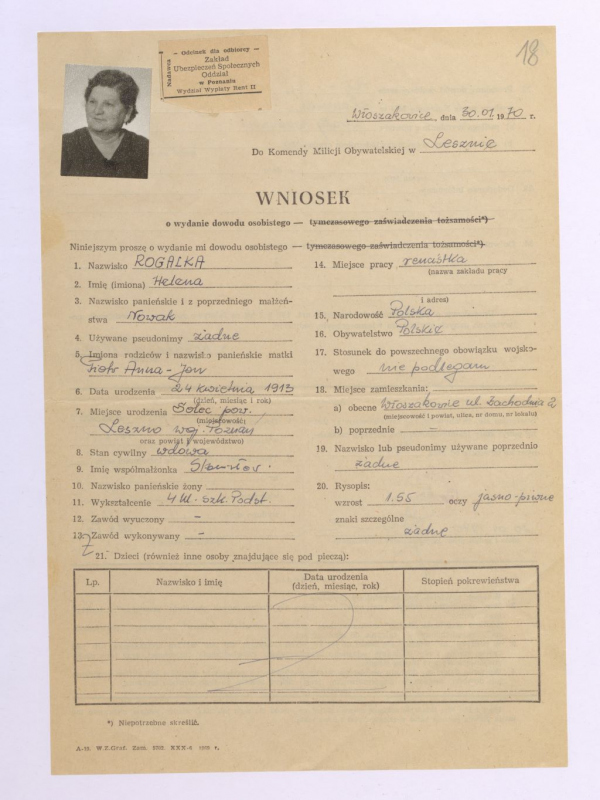 18
Nadawca
— Odcinek dla odbiorcy —
Zakład
Ubezpieczeń Społecznych
Oddział
w Poznaniu
Wydział Wypłaty Rent II
Włoszakowice, dnia 30.01 1970 r.
Do Komendy Milicji Obywatelskiej w Lesznie
WNIOSEK
o wydanie dowodu osobistego — tymczasowego zaświadczenia tożsamości*)
Niniejszym proszę o wydanie mi dowodu osobistego — tymczasowego zaświadczenia tożsamości*)
1. Nazwisko ROGALKA
2. Imię (imiona) Helena
3. Nazwisko panieńskie i z poprzedniego małżeń-
stwa Nowak
4. Używane pseudonimy żadne
5. Imiona rodziców i nazwisko panieńskie matki
Piotr Anna - Jan
6. Data urodzenia 24 kwietnia 1913
(dzień, miesiąc i rok)
7. Miejsce urodzenia pow.
(miejscowość;
Leszno woj. Poznań
oraz powiat i województwo)
8. Stan cywilny wdowa
9. Imię współmałżonka
10. Nazwisko panieńskie żony
11. Wykształcenie 4 kl. szk. Podst.
12. Zawód wyuczony –
13. Zawód wykonywany –
14. Miejsce pracy rencistka
(nazwa zakładu pracy
i adres)
15. Narodowość Polska
16. Obywatelstwo Polskie
17. Stosunek do powszechnego obowiązku wojsko-
wego nie podlegam
18. Miejsce zamieszkania:
a) obecne Włoszakowice ul. Zachodnia 2
(miejscowość i powiat, ulica, nr domu, nr lokalu)
b) poprzednie –
19. Nazwisko lub pseudonimy używane poprzednio
żadne
20. Rysopis:
wzrost 1.55 oczy jasno-piwne
znaki szczególne
żadne
21. Dzieci (również inne osoby znajdujące się pod pieczą):
Lp. Nazwisko i imię Data urodzenia (dzień, miesiąc, rok) Stopień pokrewieństwa
*) Niepotrzebne skreślić.
A-13 W.Z.Graf. Zam. XXX-6 r.